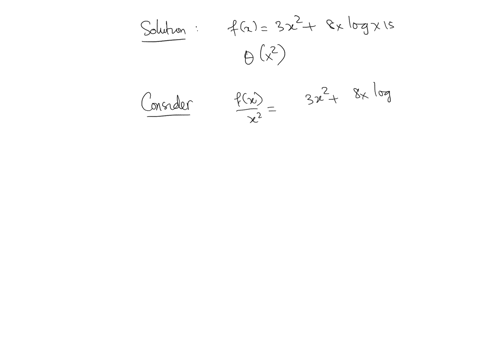 Solution : f(x) = 3x² + 8x log x is
θ(x²)
Consider f(x)/x² = 3x² + 8x log